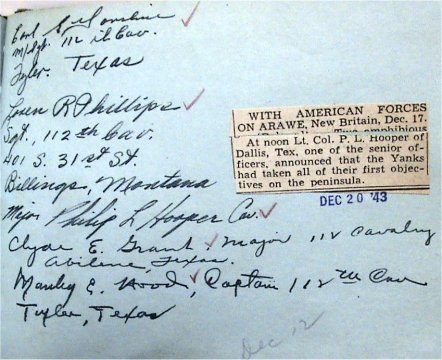 Earl
M/Sgt. 112th Cav.
Tyler, Texas
Loren R Phillips
Sgt., 112th Cav.
401 S. 31st St.
Billings, Montana
Major Philip L Hooper Cav.
Clyde E. Grant, Major 112 Cavalry
Abilene, Texas.
Manley C. Wood, Captain 112th Cav
Tyler, Texas
WITH AMERICAN FORCES
ON ARAWE, New Britain, Dec. 17.
Two amphibious
At noon Lt. Col. P. L. Hooper of
Dallis, Tex, one of the senior of-
ficers, announced that the Yanks
had taken all of their first objec-
tives on the peninsula.
DEC 20 '43
Dec 12